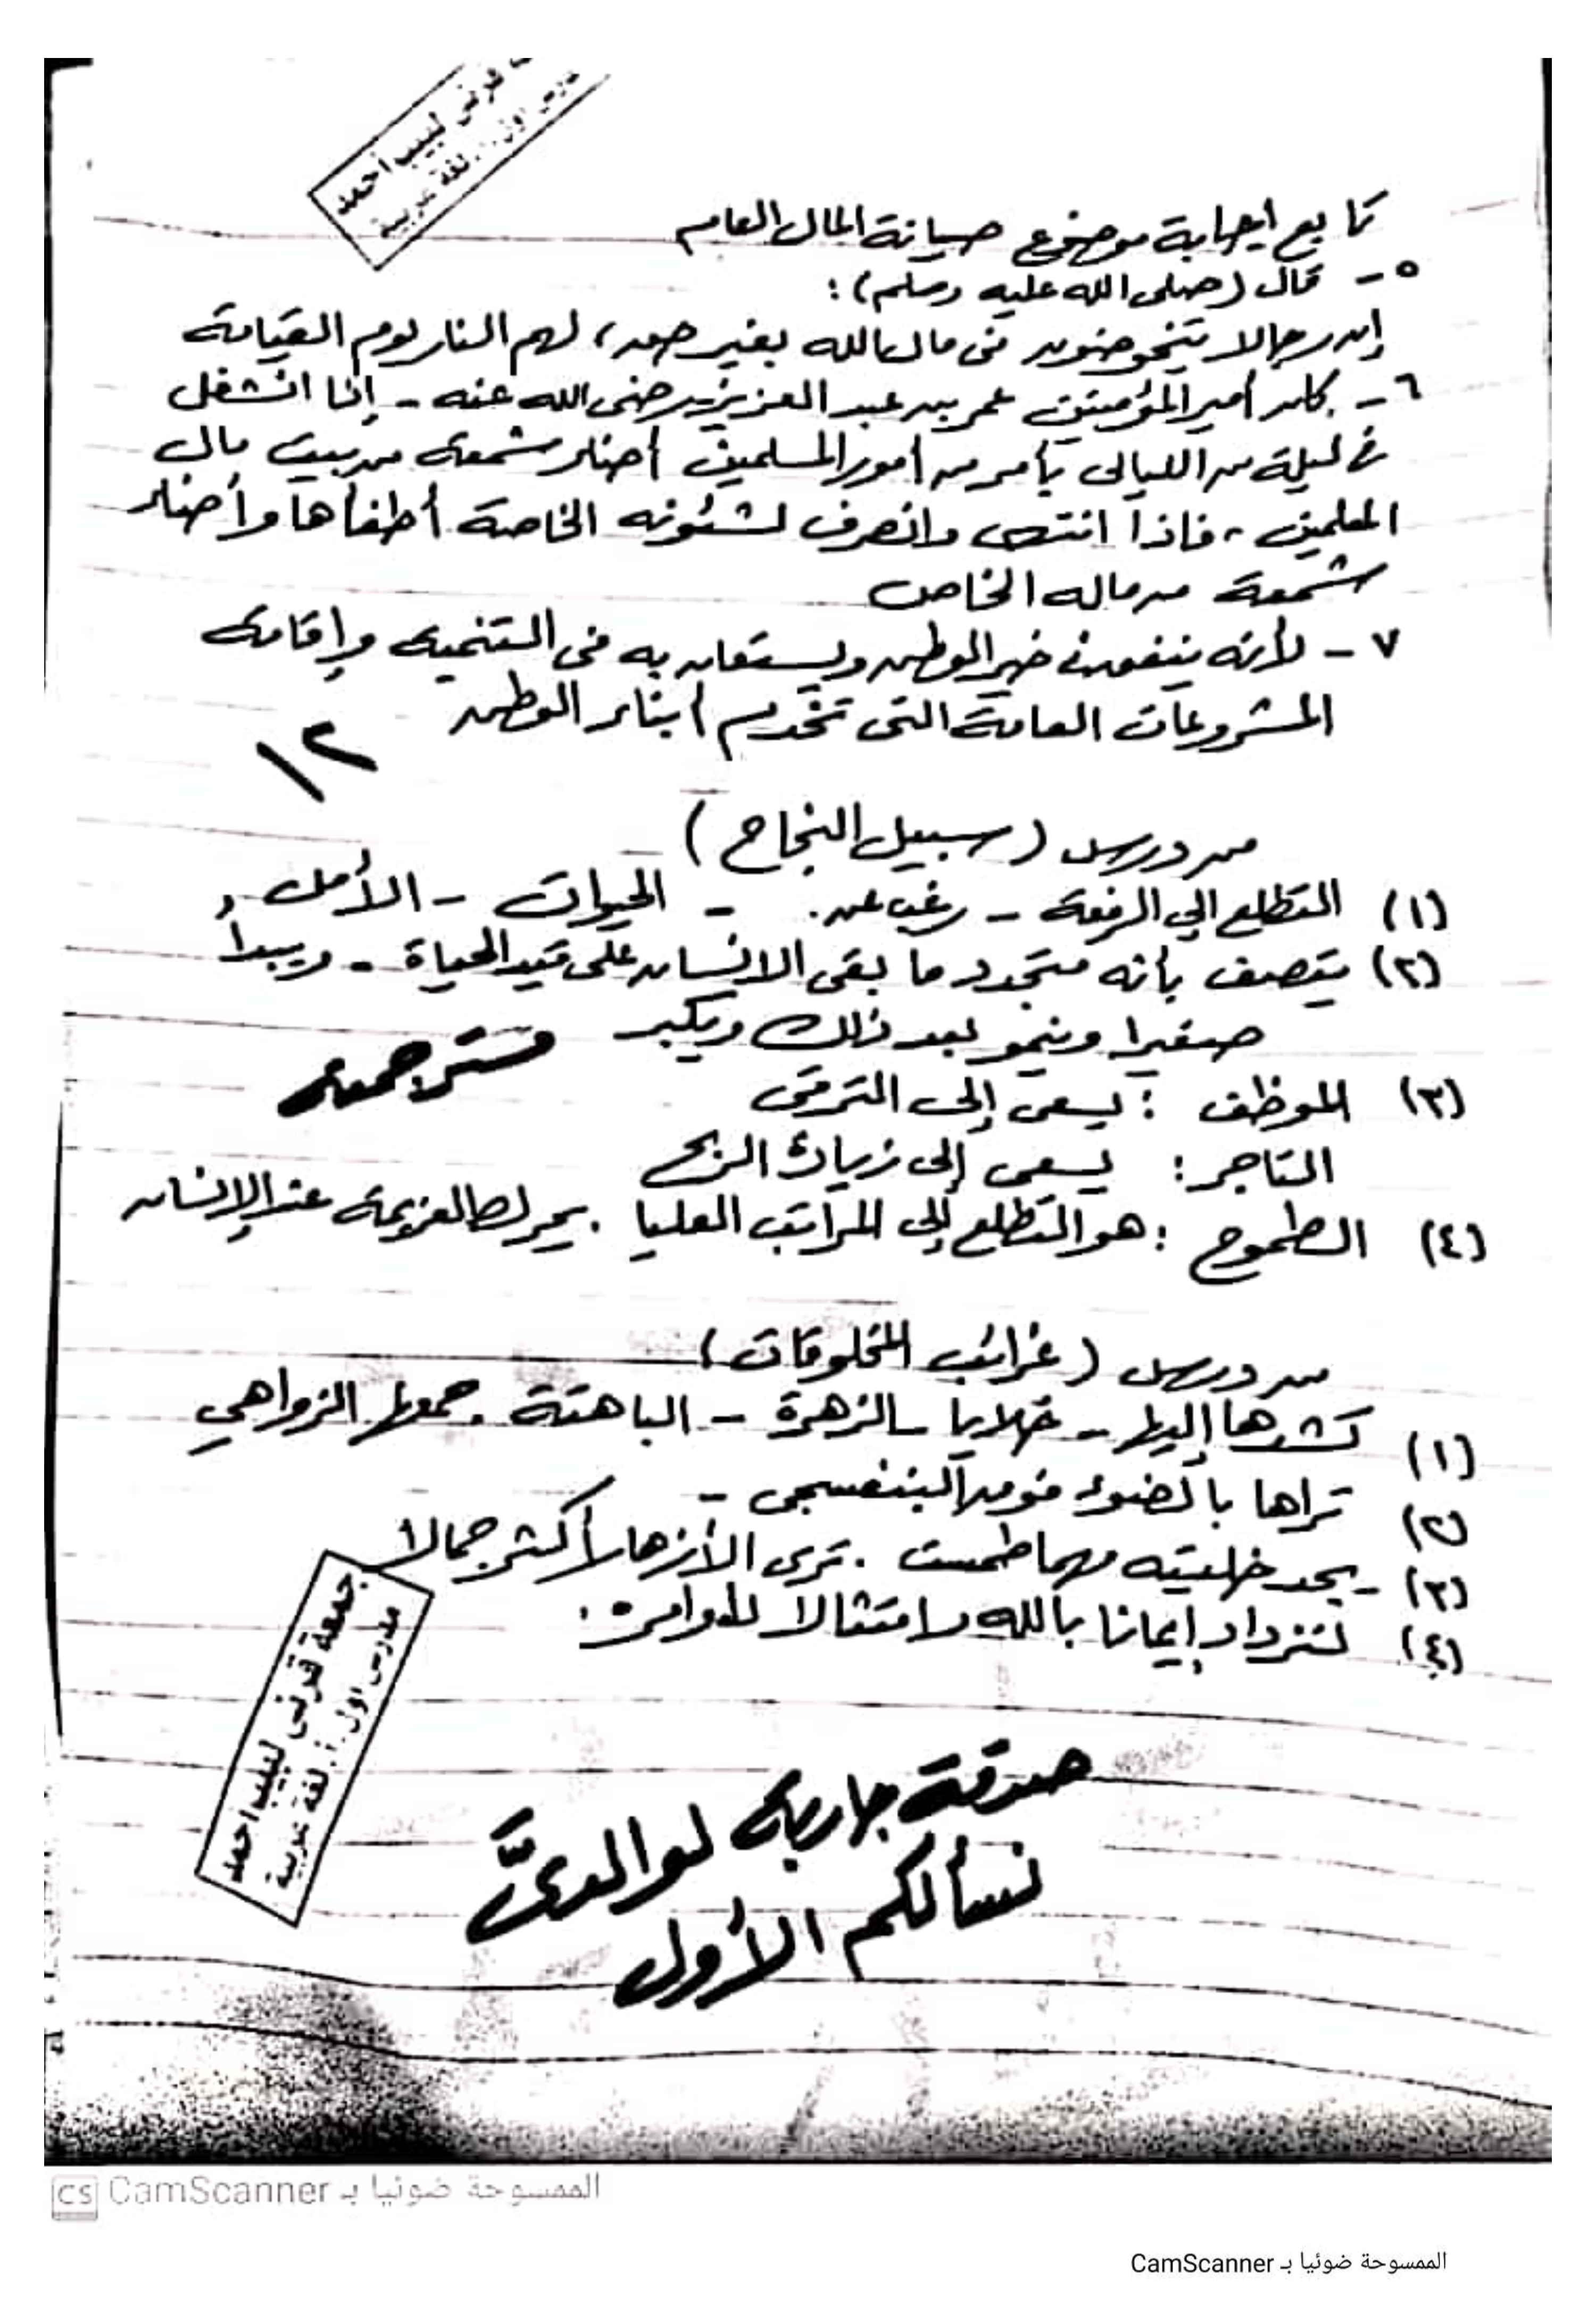 قرنى لبيب أحمد
لغة عربية
تابع إجابة موضوع صيانة المال العام
٥ - قال (صلى الله عليه وسلم) :
إن رجالا يتخوضون فى مال الله بغير حق، لهم النار يوم القيامة
٦ - كان أمير المؤمنين عمر بن عبد العزيز رضى الله عنه - إذا انشغل
فى ليلة من الليالى بأمر من أمور المسلمين أضاء شمعة من بيت مال
المسلمين، فاذا انتهى وانصرف لشئونه الخاصة أطفأها وأضاء
شمعة من ماله الخاص
٧ - لأنه ينفق فى خير الوطن ويستعان به فى التنمية وإقامة
المشروعات العامة التى تخدم أبناء الوطن
١٢
من درس (سبيل النجاح)
(١) التطلع إلى الرفعة - رغب عن. - الحيوات - الأمل
(٢) يتصف بأنه متجدد ما بقى الانسان على قيد الحياة - ويبدأ
صغيرا وينمو بعد ذلك ويكبر
مستر جمعة
(٣) الموظف : يسعى إلى الترقى
التاجر : يسعى إلى زيادة الربح
(٤) الطموح : هو التطلع إلى المراتب العليا . يحرك العزيمة عند الإنسان
من درس (غرائب المخلوقات)
(١) تشدها إليها - خلايا - الزهرة - الباهتة . جمعها الزواهي
(٢) تراها بالضوء فوق البنفسجى -
(٣) - يجد خليته مهما طمست . ترى الأزهار أكثر جمالا
(٤) لنزداد إيمانا بالله وامتثالا لأوامره.
جمعة قرنى لبيب احمد
مدرس اول أ. لغة عربية
صدقة جارية لوالدىَّ
نسألكم الأول
الممسوحة ضوئيا بـ CamScanner
CS
الممسوحة ضوئيا بـ CamScanner